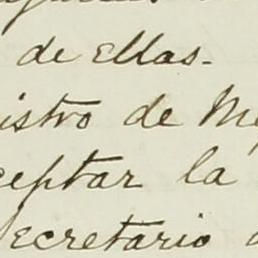 de ellas.
istro de Me
ceptar la
Secretario d